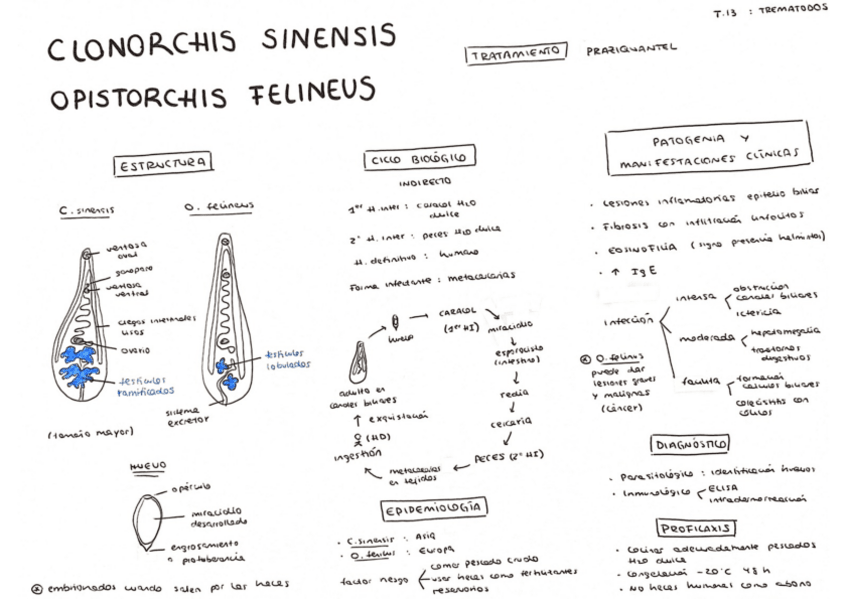 T.13 : TREMATODOS
CLONORCHIS SINENSIS
OPISTORCHIS FELINEUS
TRATAMIENTO PRAZIQUANTEL
ESTRUCTURA
C. sinensis O. felineus
ventosa
oral
gonoporo
ventosa
ventral
ciegos intestinales
lisos
ovario
testículos
ramificados
testículos
lobulados
sistema
excretor
(tamaño mayor)
HUEVO
opérculo
miracidio
desarrollado
engrosamiento
o protoberancia
* embrionados cuando salen por las heces
CICLO BIOLÓGICO
INDIRECTO
1er H.inter : caracol H2O
dulce
2º H. inter : peces H2O dulce
H. definitivo : humano
Forma infectante : metacercarias
huevo
CARACOL
(1er HI)
miracidio
esporocisto
(intestino)
redia
cercaria
PECES (2º HI)
metacercarias
en tejidos
ingestión
(HD)
exquistación
adulto en
canales biliares
EPIDEMIOLOGÍA
· C.sinensis : Asia
· O. felineus : Europa
factor riesgo
comer pescado crudo
usar heces como fertilizantes
reservorios
PATOGENIA Y
MANIFESTACIONES CLÍNICAS
· Lesiones inflamatorias epitelio biliar
· Fibrosis con infiltración linfocitos
· EOSINOFILIA (signo presencia helmintos)
· ↑ IgE
infección
intensa
obstrucción
canales biliares
ictericia
moderada
hepatomegalia
trastornos
digestivos
* O. felineus
puede dar
lesiones graves
y malignas
(cáncer)
formación
cálculos biliares
colecistitis con
cálculos
DIAGNÓSTICO
· Parasitológico : identificación huevos
· Inmunológico
ELISA
intradermorreacción
PROFILAXIS
· Cocinar adecuadamente pescados
H2O dulce
· Congelación -20ºC 48 h
· No heces humanas como abono